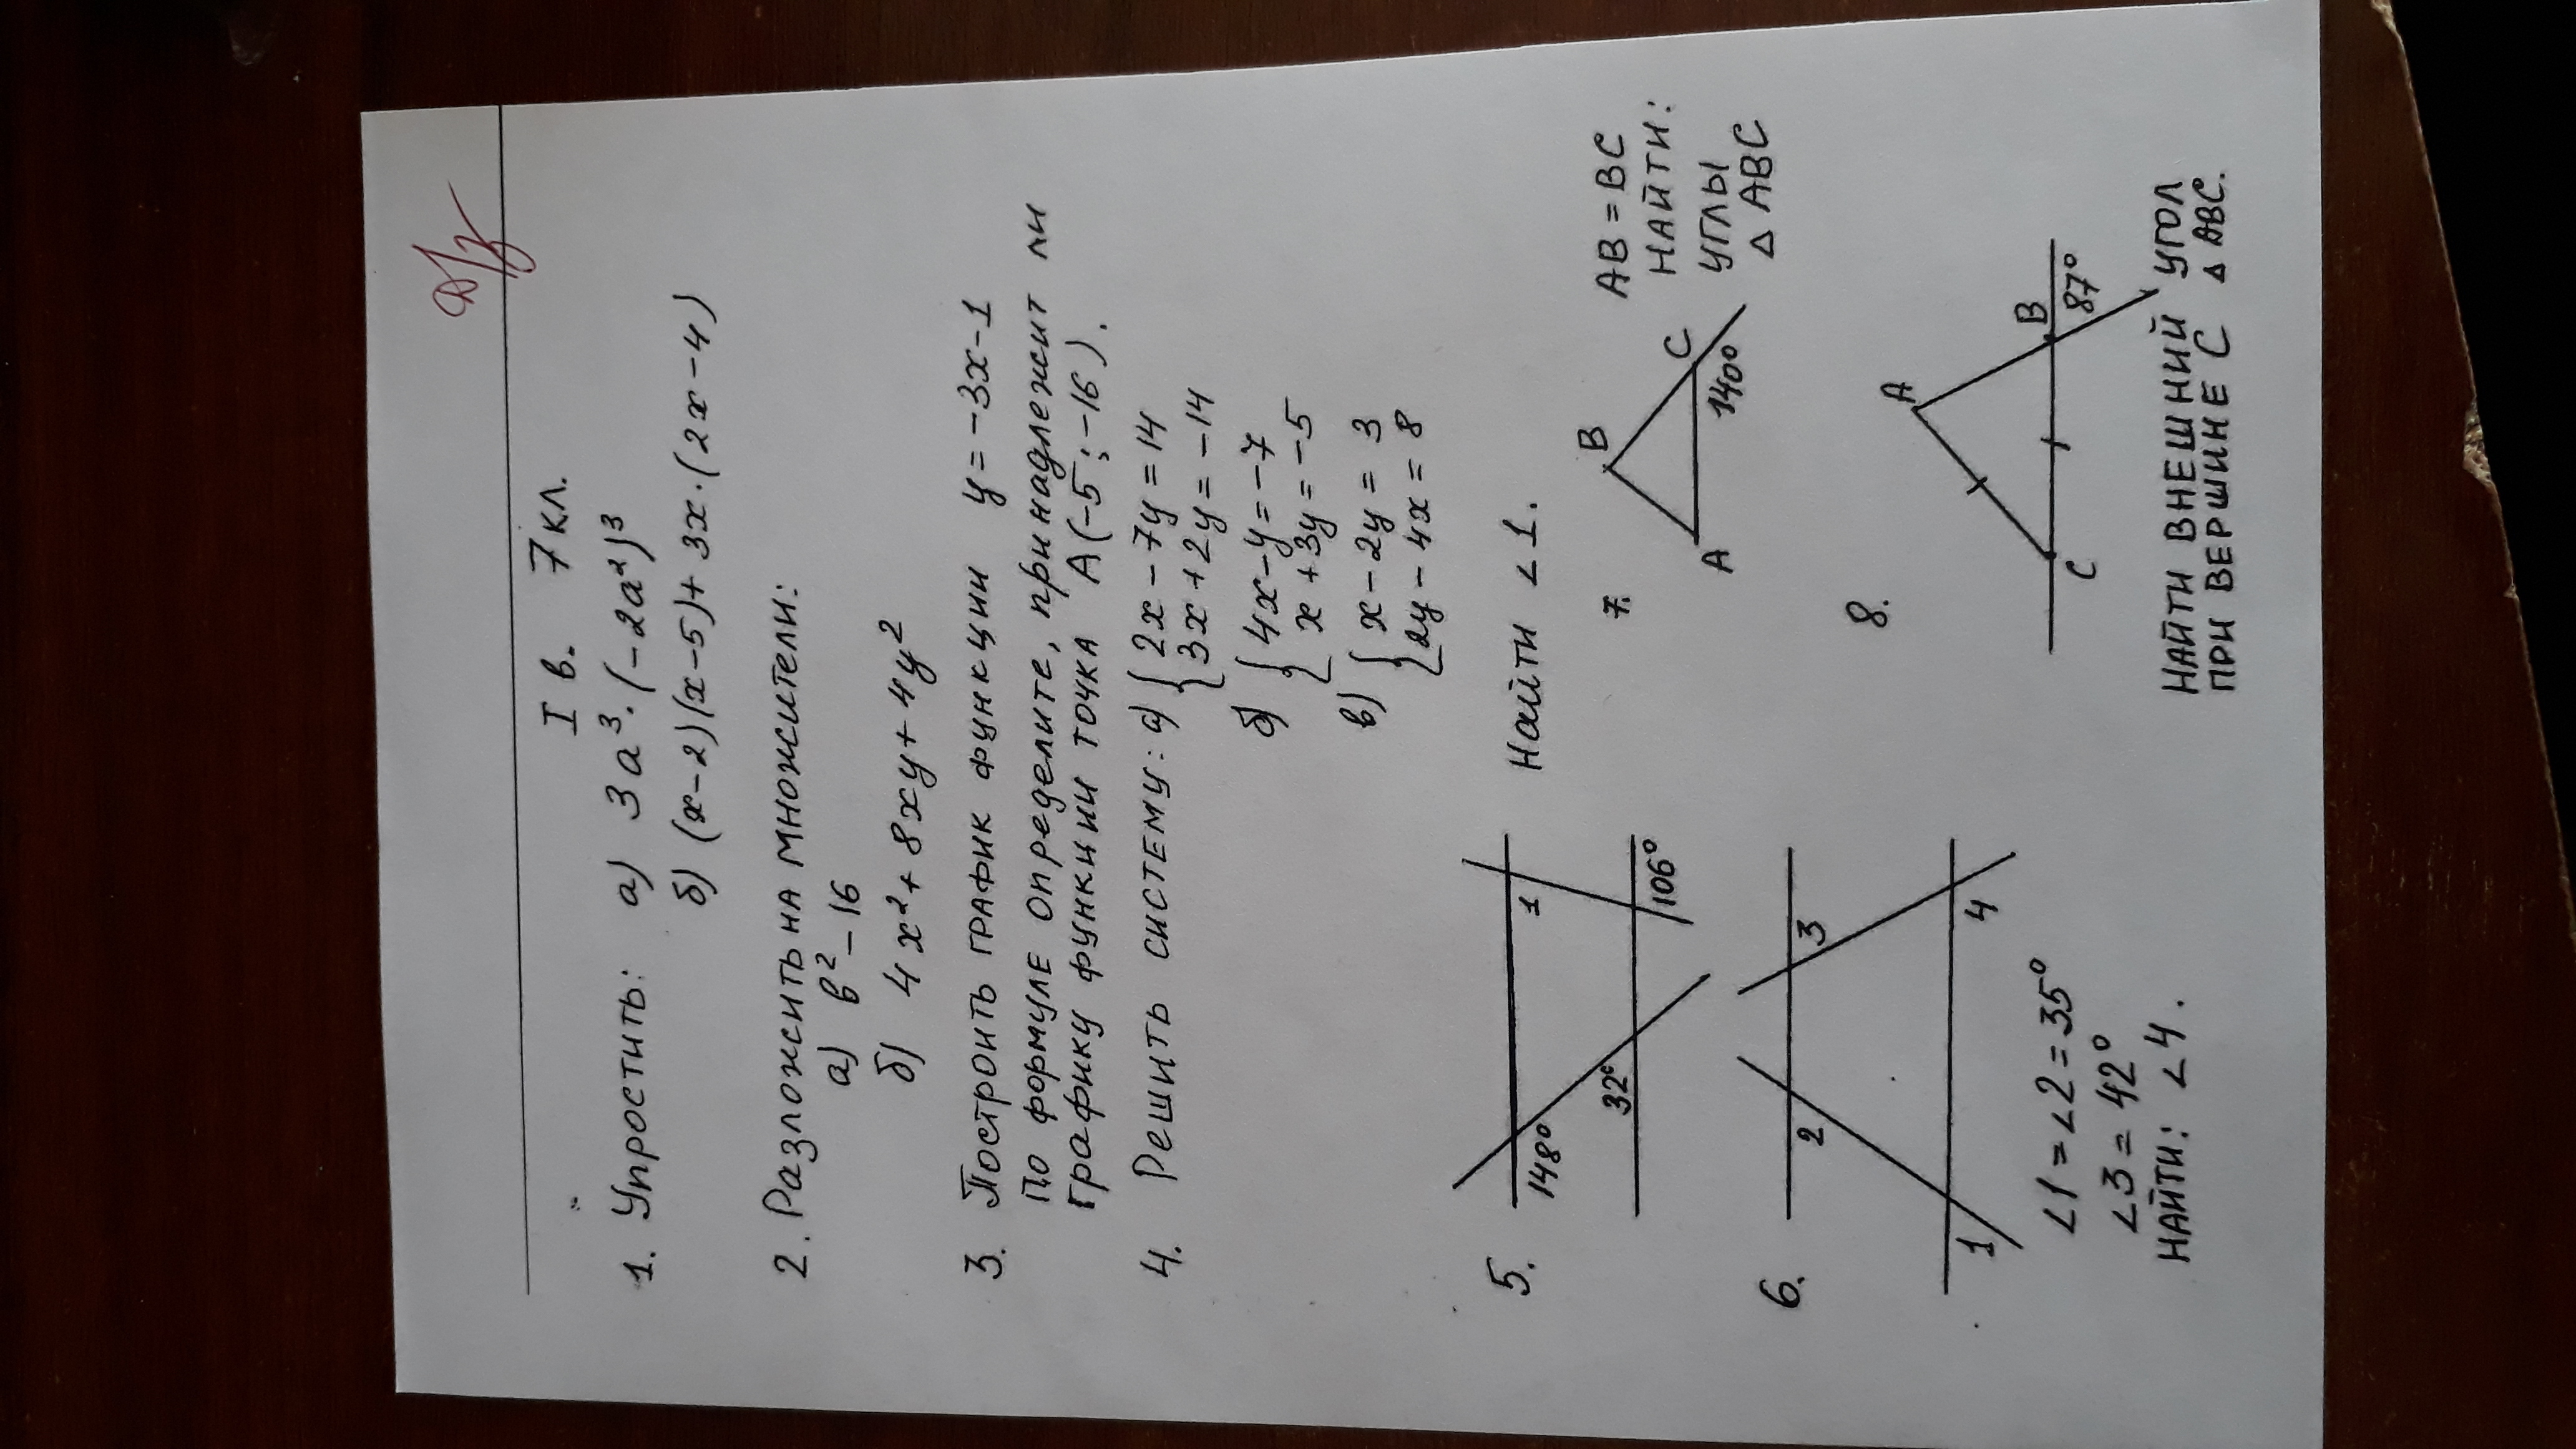 Д/з
I в. 7 кл.
1. Упростить: а) 3a³·(-2a²)³
б) (x-2)(x-5)+3x·(2x-4)
2. Разложить на множители:
а) b²-16
б) 4x²+8xy+4y²
3. Построить график функции y=-3x-1
По формуле определите, принадлежит ли
графику функции точка А(-5;-16).
4. Решить систему: а) { 2x-7y=14
3x+2y=-14
б) { 4x-y=-7
x+3y=-5
в) { x-2y=3
2y-4x=8
5. Найти ∠1.
148°
1
32°
106°
6.
2
3
1
4
∠1=∠2=35°
∠3=42°
НАЙТИ: ∠4.
7.
B
A
C
140°
AB=BC
НАЙТИ:
УГЛЫ
△ ABC
8.
A
C
B
87°
НАЙТИ ВНЕШНИЙ УГОЛ
ПРИ ВЕРШИНЕ C △ ABC.